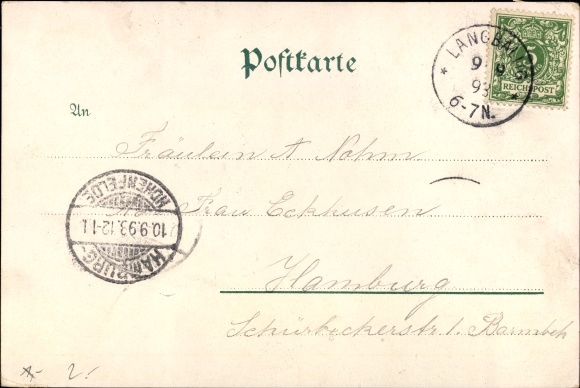 Postkarte
LANGBALLIG
9 9
93
6-7N.
5
REICHSPOST
An
Fräulein A Nohm
HAMBURG-
10.9.93.12-1
HOHENFELDE
Frau Eckhusen
Hamburg
Schürbeckerstr 1. Barmbek
2!